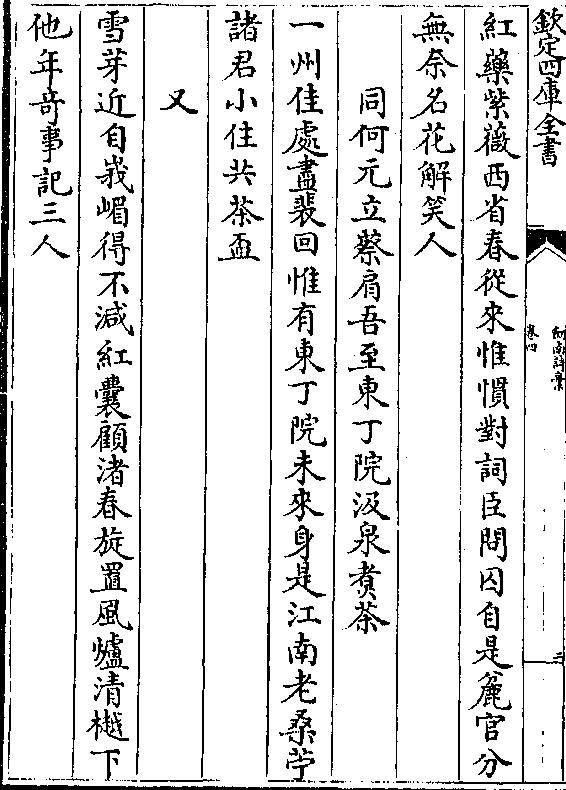 欽定四庫全書
劍南詩稾
卷四
三
紅藥紫薇西省春從來惟慣對詞臣問囚自是麄官分
無奈名花解笑人
同何元立蔡肩吾至東丁院汲泉煑茶
一州佳處盡裴回惟有東丁院未來身是江南老桑苧
諸君小住共茶盃
又
雪芽近自峩嵋得不減紅囊顧渚春旋置風爐清樾下
他年竒事記三人